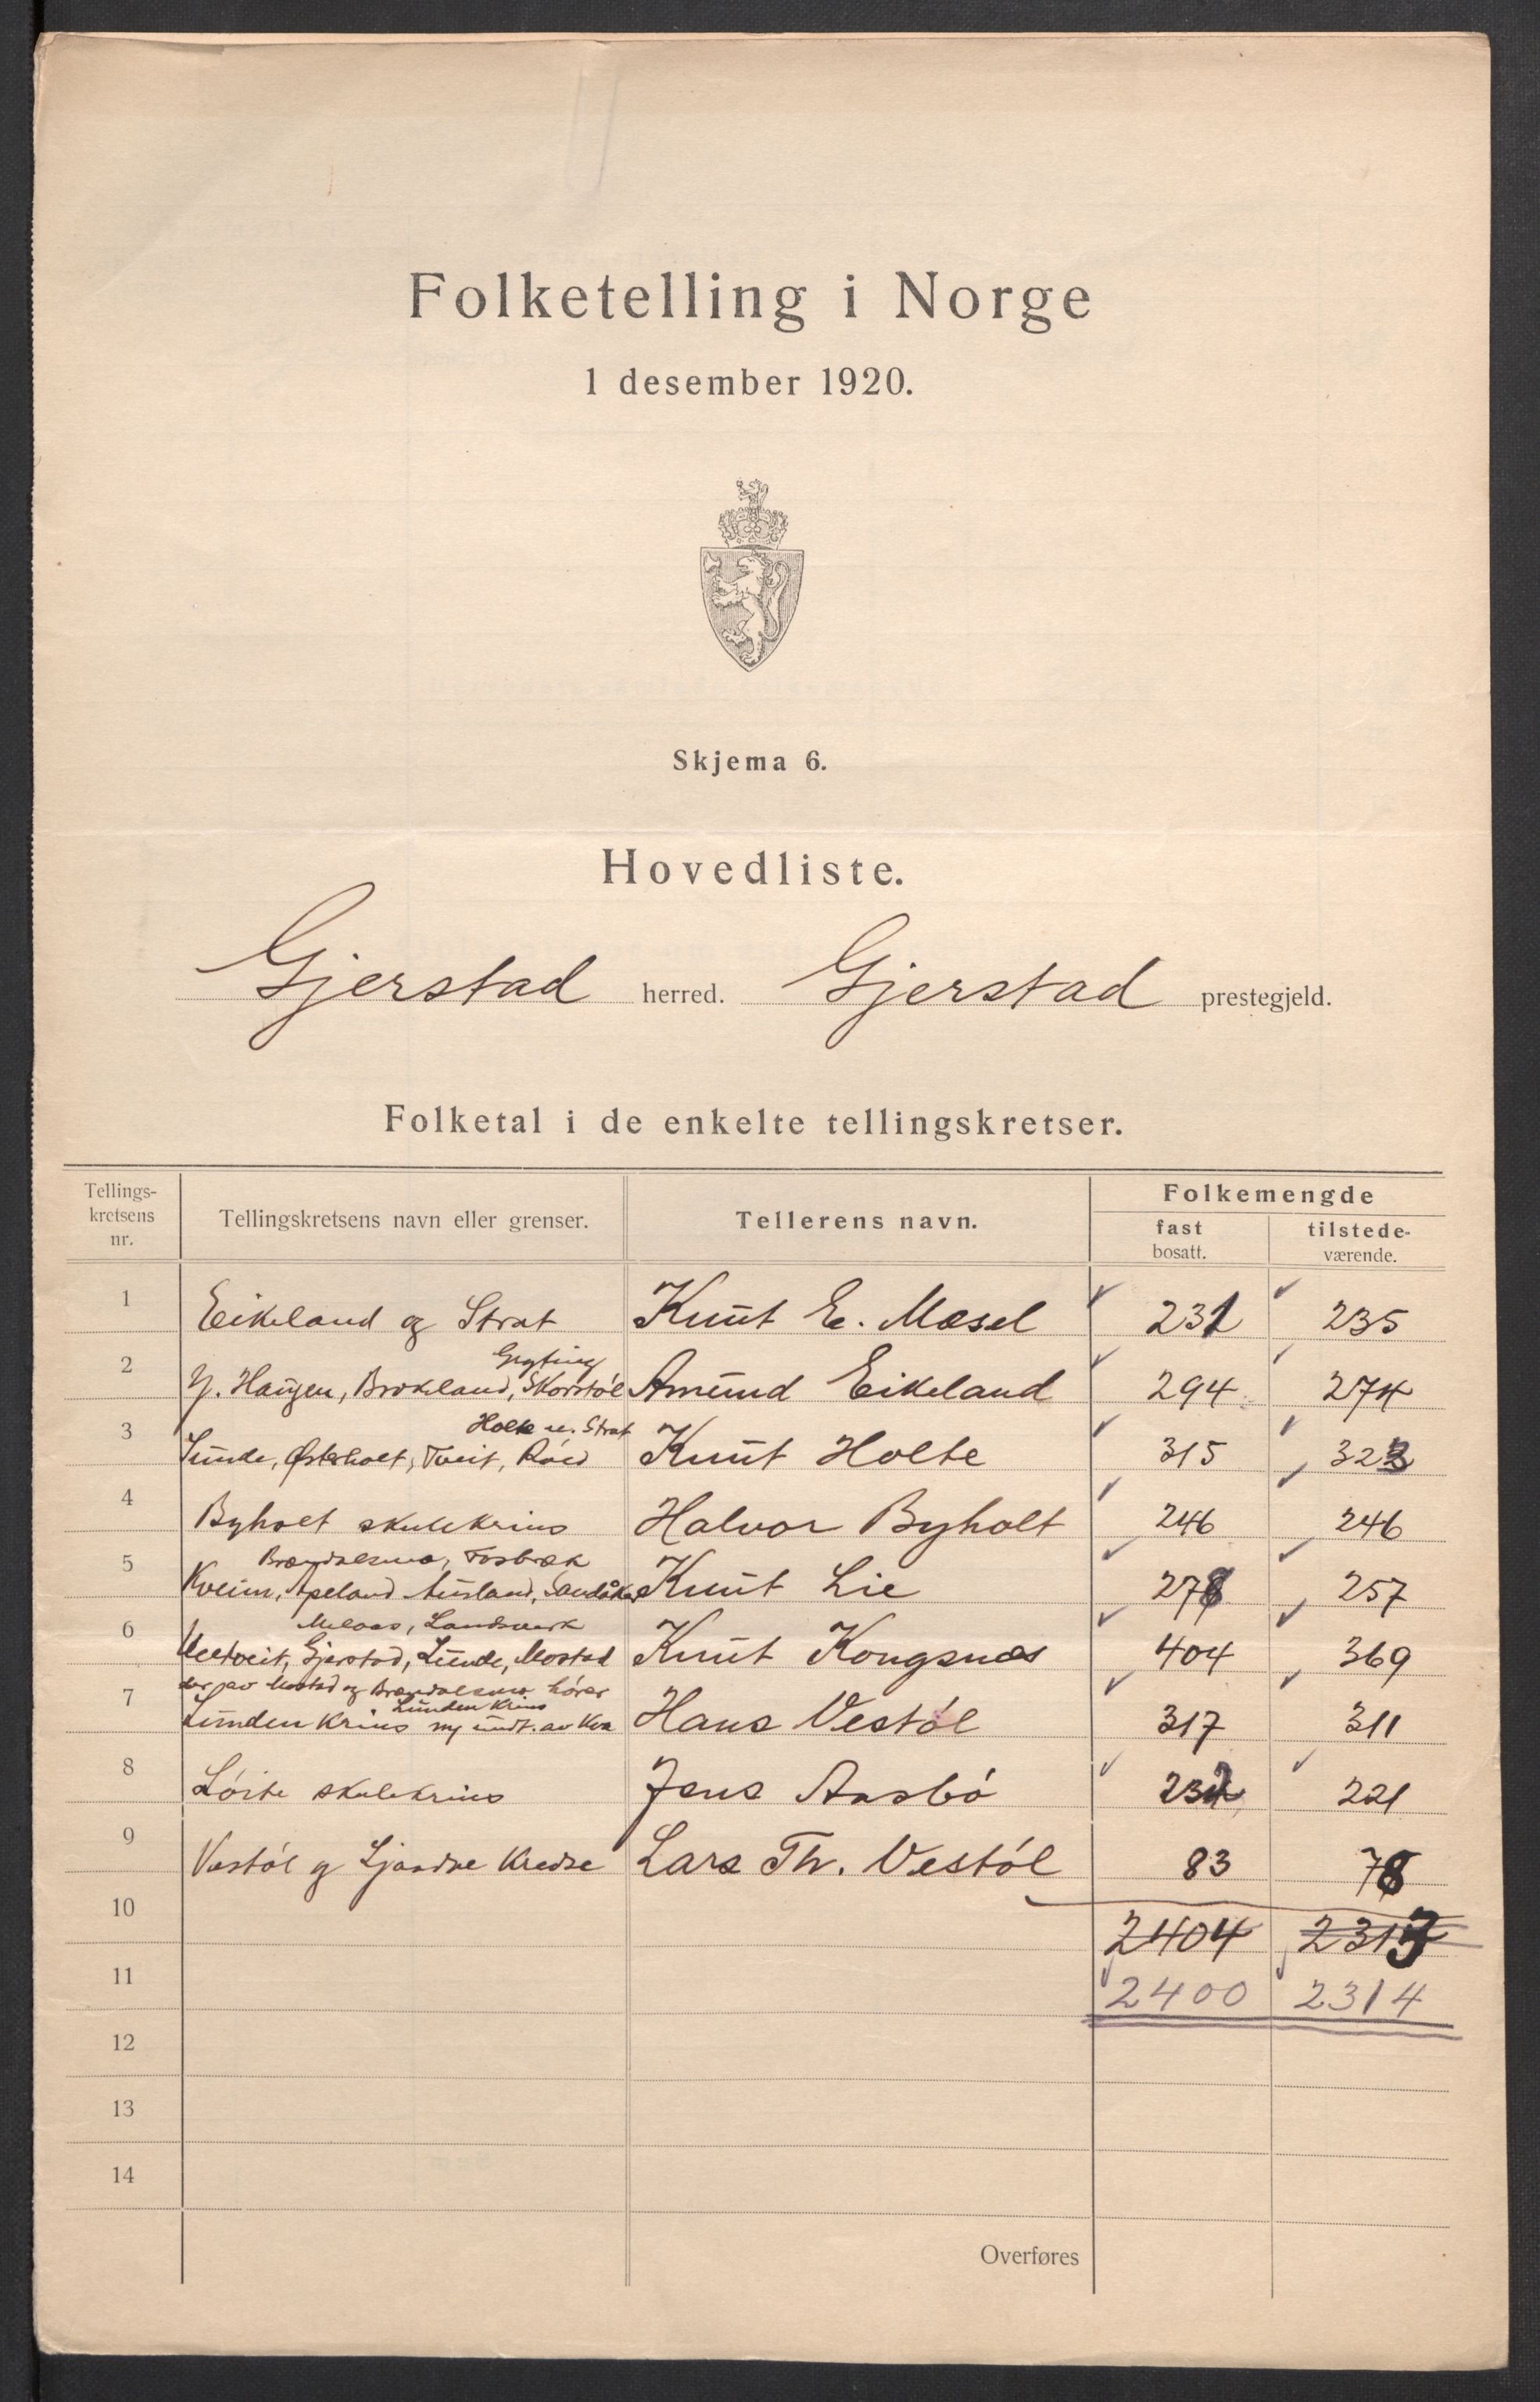 Folketelling i Norge
1 desember 1920.
Skjema 6.
Hovedliste.
Gjerstad herred. Gjerstad prestegjeld.
Folketal i de enkelte tellingskretser.
Tellings-kretsens nr. Tellingskretsens navn eller grenser. Tellerens navn. Folkemengde fast bosatt. tilstede-værende.
1 Eikeland og Strat Knut E. Mæsel 231 235
Gryting
2 Y. Haugen, Brokeland, Skorstøl Amund Eikeland 294 274
Holte Strat
3 Sunde, Østerholt, Tveit, Røed Knut Holte 315 323
4 Byholt skulekrins Halvor Byholt 246 246
Brændalsmo, Fosbræk
5 Kveim, Apeland Ausland, Sandåker Knut Lie 278 257
Melaas, Landsverk
6 Ueltveit, Gjerstad, Lunde, Mostad Knut Kongsnæs 404 369
av Mostad og Brændalsmo hører
Lunden Krins
7 Lunden Krins av Hans Vestøl 317 311
8 Løite skulekrins Jens Aasbø 232 221
9 Vestøl og Ljaadne Kredse Lars Th. Vestøl 83 78
10 2404 2313
11 2400 2314
12
13
14
Overføres